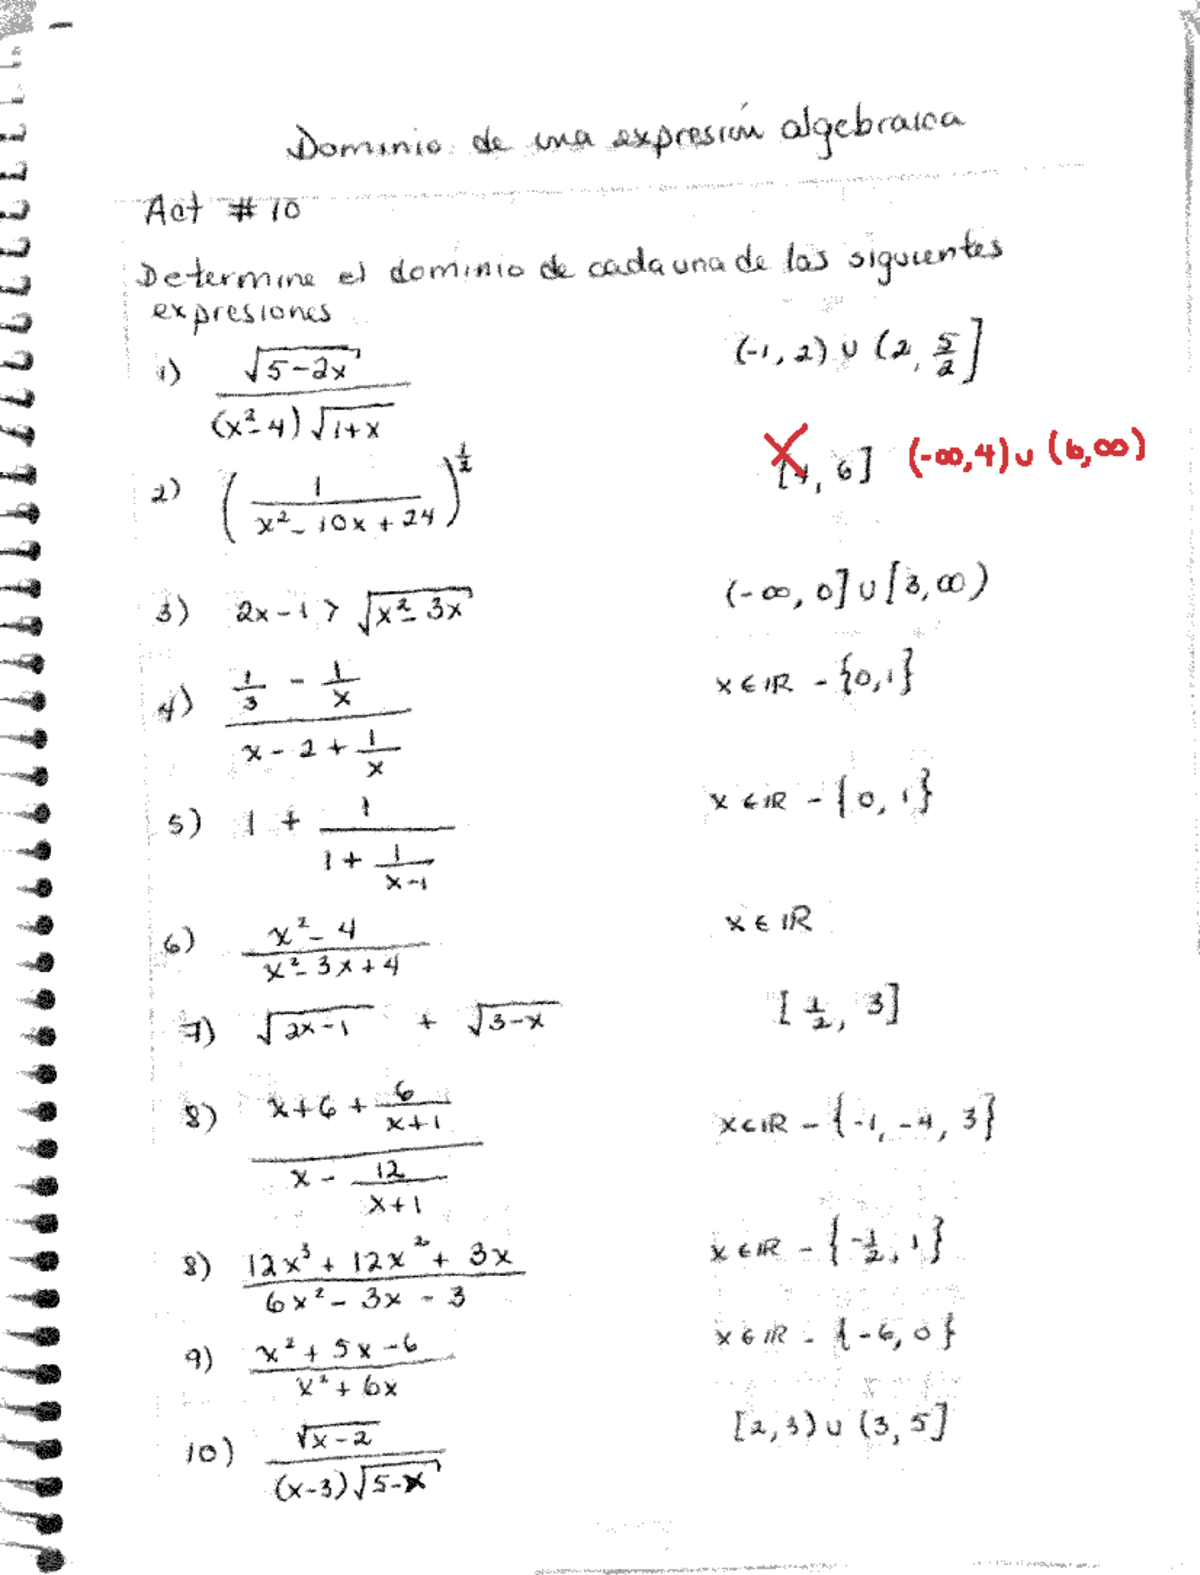 Dominio de una expresión algebraica
Act # 10
Determine el dominio de cada una de las siguientes
expresiones
1) √(5-2x) / ((x²-4)√(1+x))    (-1, 2) ∪ (2, 5/2]
2) (1 / (x²-10x+24))^(1/2)    [4, 6] (-∞,4)∪(6,∞)
3) 2x-1 > √(x²-3x)    (-∞, 0] ∪ [3, ∞)
4) (1/3 - 1/x) / (x-2+1/x)    x ∈ ℝ - {0,1}
5) 1 + 1/(1 + 1/(x-1))    x ∈ ℝ - {0, 1}
6) (x²-4) / (x²-3x+4)    x ∈ ℝ
7) √(2x-1) + √(3-x)    [1/2, 3]
8) (x+6+6/(x+1)) / (x-12/(x+1))    x ∈ ℝ - {-1, -4, 3}
8) (12x³+12x²+3x) / (6x²-3x-3)    x ∈ ℝ - {-1/2, 1}
9) (x²+5x-6) / (x²+6x)    x ∈ ℝ - {-6, 0}
10) √(x-2) / ((x-3)√(5-x))    [2, 3) ∪ (3, 5]